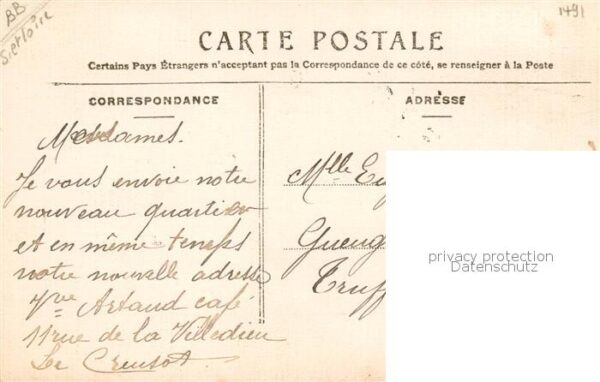 BB
S. et Loire
1491
CARTE POSTALE
Certains Pays Étrangers n'acceptant pas la Correspondance de ce côté, se renseigner à la Poste
CORRESPONDANCE
Mesdames.
Je vous envoie notre
nouveau quartier
et en même temps
notre nouvelle adresse
Vve Artaud café
11 rue de la Villedieu
Le Creusot
ADRESSE
Mlle Eug
Gueug
Truff
privacy protection
Datenschutz